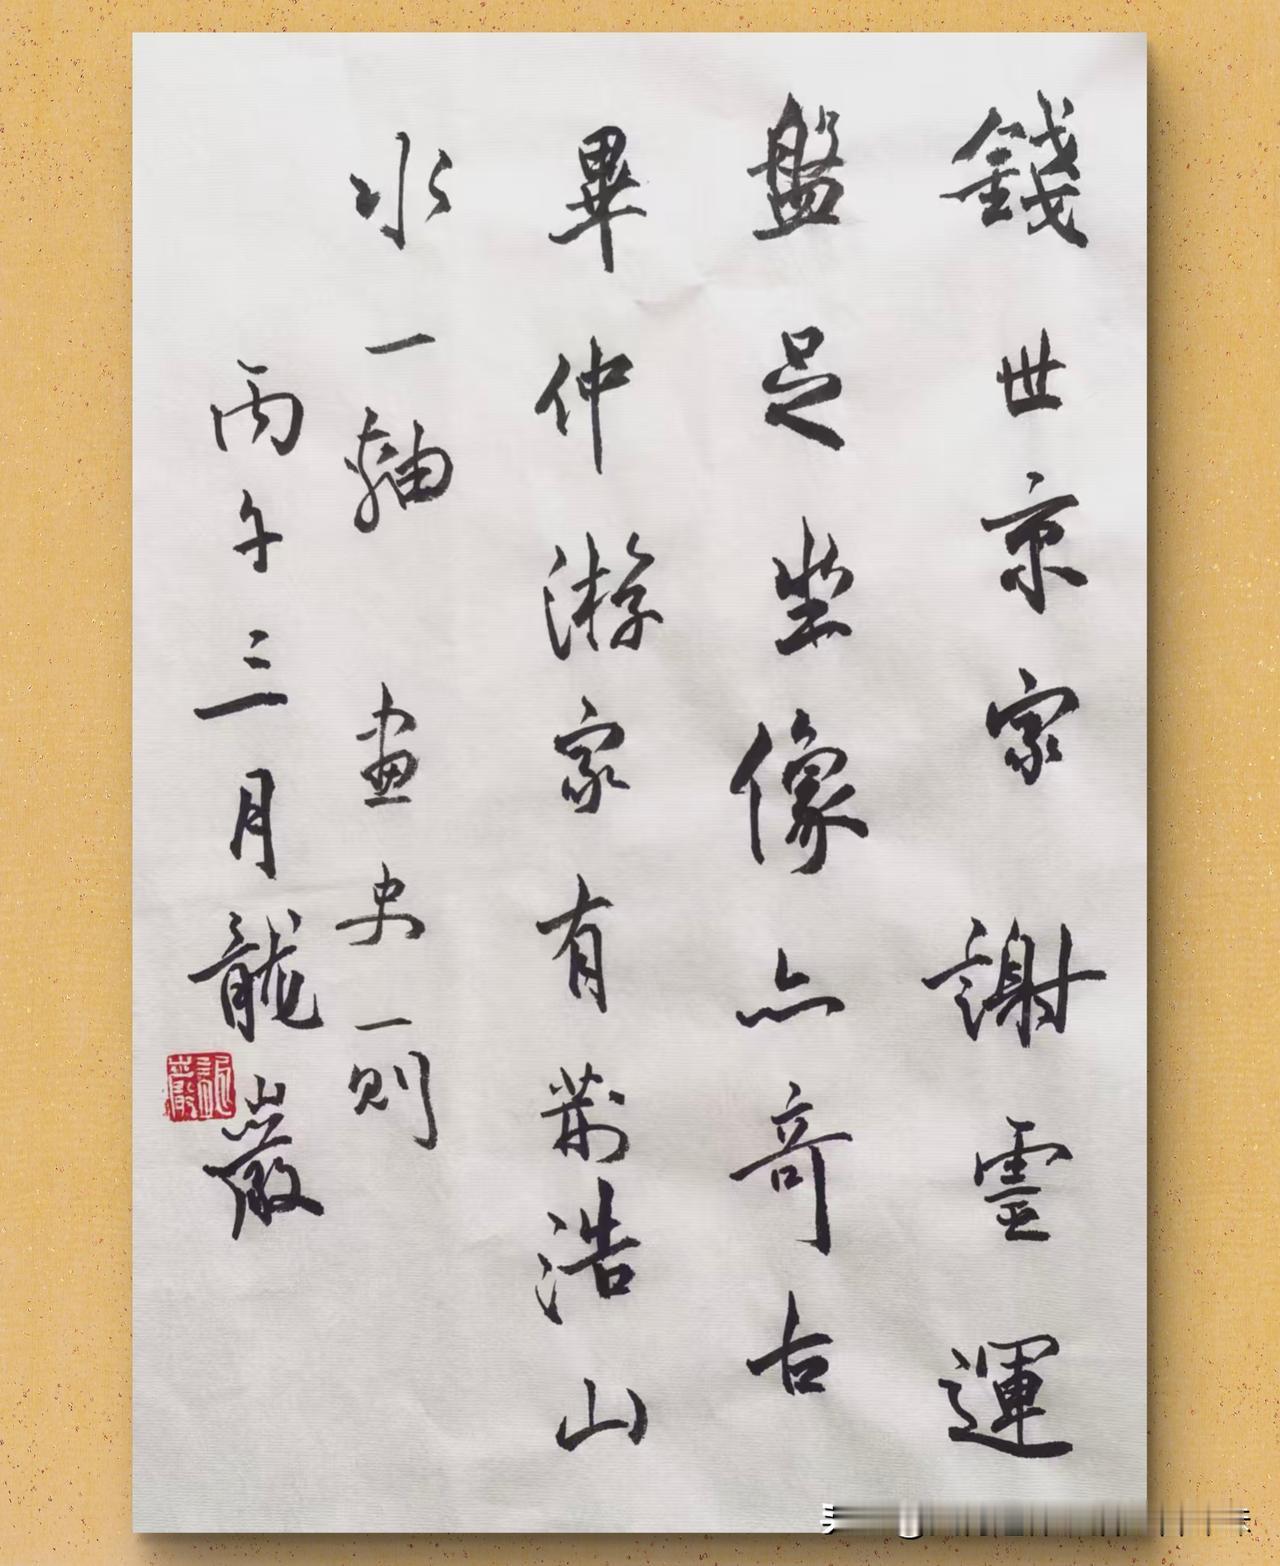 錢世京家謝靈運
盤足坐像亦奇古
畢仲游家有荊浩山
水一軸 畫史一則
丙午三月龍巖